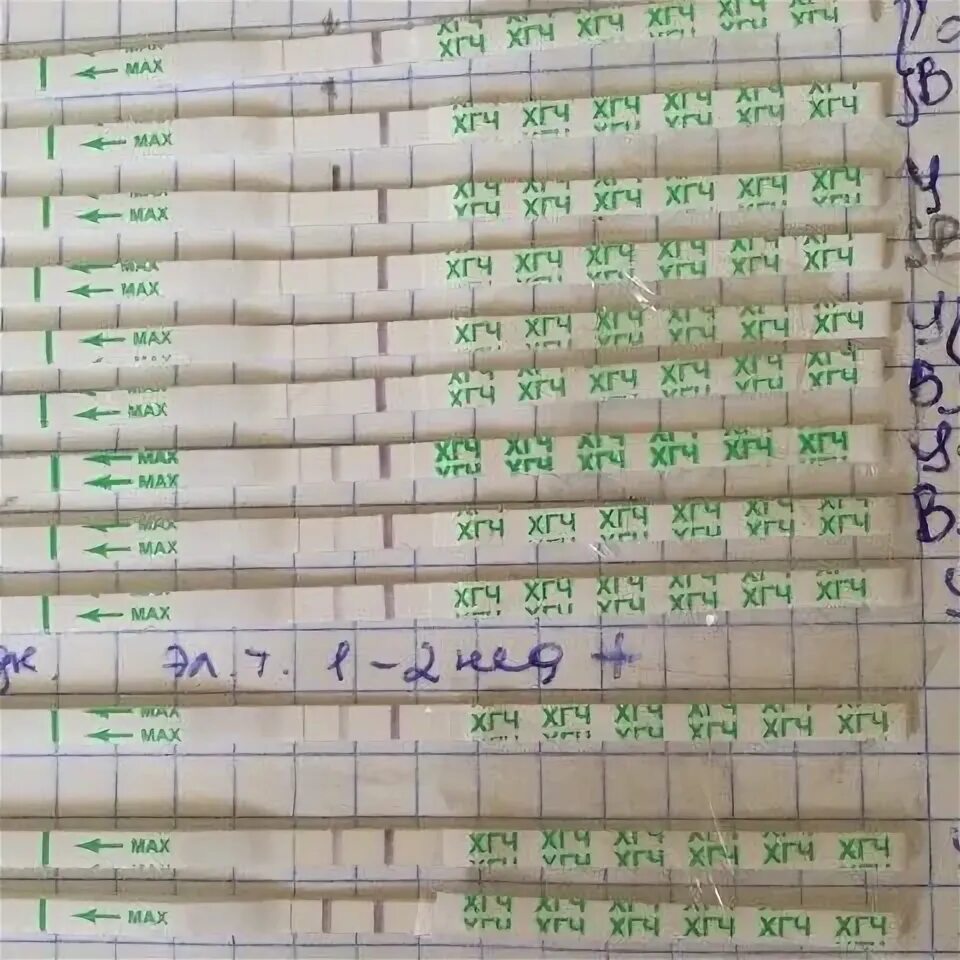 ХГЧ ХГЧ ХГЧ ХГЧ ХГЧ ХГЧ
MAX ХГЧ ХГЧ ХГЧ ХГЧ ХГЧ ХГЧ
ХГЧ ХГЧ ХГЧ ХГЧ В
MAX ХГЧ ХГЧ ХГЧ ХГЧ ХГЧ ХГЧ
MAX ХГЧ ХГЧ ХГЧ ХГЧ ХГЧ ХГЧ У
MAX ХГЧ ХГЧ ХГЧ ХГЧ ХГЧ ХГЧ
MAX ХГЧ ХГЧ ХГЧ ХГЧ ХГЧ ХГЧ
MAX
MAX ХГЧ ХГЧ ХГЧ ХГЧ ХГЧ ХГЧ У
MAX ХГЧ ХГЧ ХГЧ ХГЧ ХГЧ ХГЧ В.
MAX ХГЧ ХГЧ ХГЧ ХГЧ ХГЧ ХГЧ У
MAX
MAX ХГЧ ХГЧ ХГЧ ХГЧ ХГЧ ХГЧ В.
MAX
MAX ХГЧ ХГЧ ХГЧ ХГЧ ХГЧ ХГЧ
эл. т. 1-2 нед +
MAX ХГЧ ХГЧ ХГЧ ХГЧ ХГЧ ХГЧ
MAX
MAX ХГЧ ХГЧ ХГЧ ХГЧ ХГЧ ХГЧ
MAX ХГЧ ХГЧ ХГЧ ХГЧ ХГЧ ХГЧ